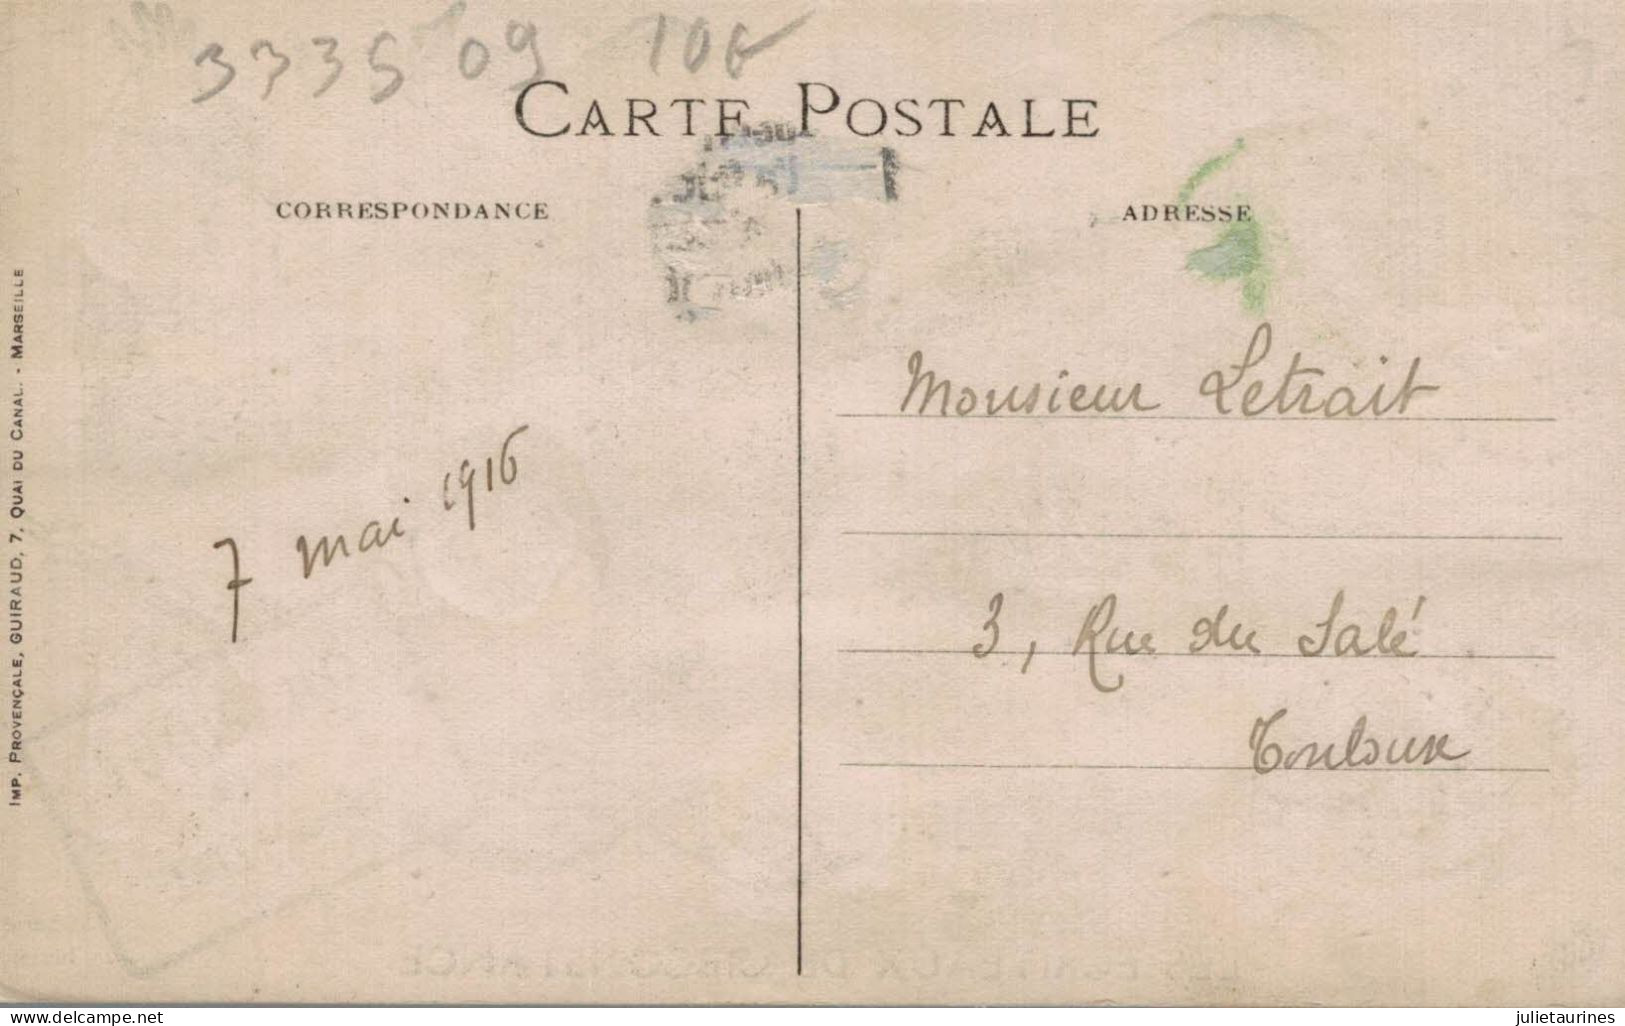 333509 10€
CARTE POSTALE
CORRESPONDANCE
ADRESSE
IMP. PROVENÇALE, GUIRAUD, 7, QUAI DU CANAL. - MARSEILLE
7 mai 1916
Monsieur Letrait
3, Rue du Salé
Toulouse
delcampe.net
julietaurines